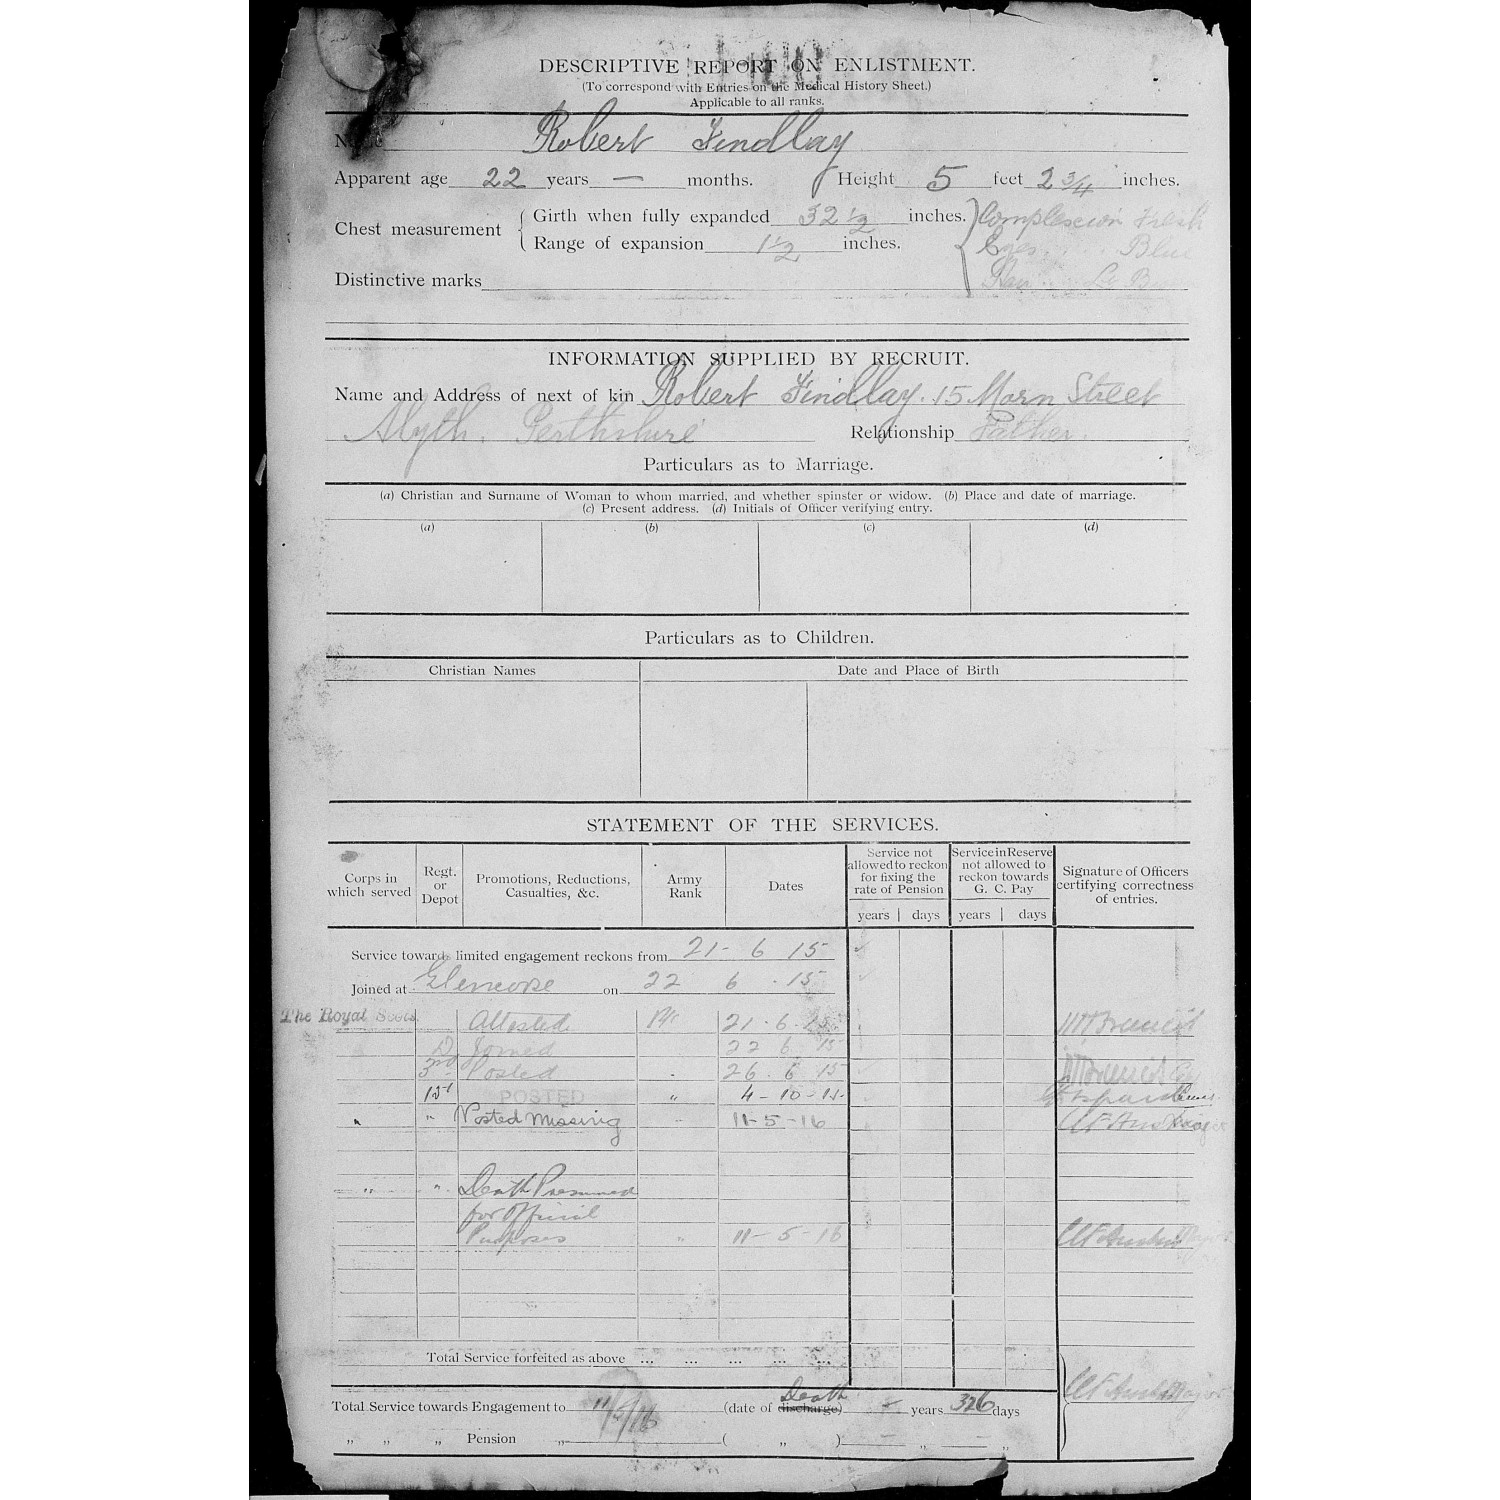 DESCRIPTIVE REPORT ON ENLISTMENT.
(To correspond with Entries on the Medical History Sheet.)
Applicable to all ranks.
Name Robert Findlay
Apparent age 22 years — months. Height 5 feet 2 3/4 inches.
Chest measurement { Girth when fully expanded 32 1/2 inches. } Complexion Fresh
Range of expansion 1 1/2 inches. Eyes Blue
Distinctive marks
INFORMATION SUPPLIED BY RECRUIT.
Name and Address of next of kin Robert Findlay. 15 Morn Street
Alyth. Perthshire Relationship Father.
Particulars as to Marriage.
(a) Christian and Surname of Woman to whom married, and whether spinster or widow. (b) Place and date of marriage.
(c) Present address. (d) Initials of Officer verifying entry.
(a) (b) (c) (d)
Particulars as to Children.
Christian Names Date and Place of Birth
STATEMENT OF THE SERVICES.
Corps in which served Regt. or Depot Promotions, Reductions, Casualties, &c. Army Rank Dates Service not allowed to reckon for fixing the rate of Pension Service in Reserve not allowed to reckon towards G. C. Pay Signature of Officers certifying correctness of entries.
years days years days
Service towards limited engagement reckons from 21 - 6 15
Joined at Glencorse on 22 6 . 15
The Royal Scots. Attested Pte 21 . 6 . 15
D Joined 22 6 15
3rd Posted " 26 . 6 15
1st POSTED " 4 - 10 - 15
" " Posted Missing " 11 - 5 - 16
" " Death Presumed
for Official
Purposes " 11 - 5 - 16
Total Service forfeited as above ... ... ... ... ...
Death
Total Service towards Engagement to 11/5/16 (date of discharge) - years 326 days
" " " Pension " ( " ) - " - "